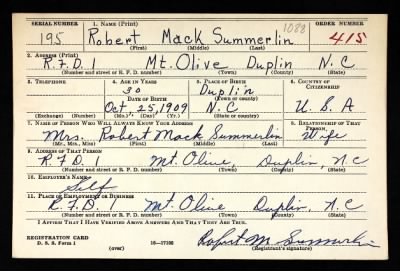 SERIAL NUMBER 1. NAME (Print) ORDER NUMBER
1088
195 Robert Mack Summerlin 415
(First) (Middle) (Last)
2. ADDRESS (Print)
R.F.D. 1 Mt. Olive Duplin N.C
(Number and street or R. F. D. number) (Town) (County) (State)
3. TELEPHONE 4. AGE IN YEARS 5. PLACE OF BIRTH 6. COUNTRY OF CITIZENSHIP
30 Duplin
DATE OF BIRTH (Town or county)
Oct 25, 1909 N.C U.S.A
(Exchange) (Number) (Mo.) (Day) (Yr.) (State or country)
7. NAME OF PERSON WHO WILL ALWAYS KNOW YOUR ADDRESS 8. RELATIONSHIP OF THAT PERSON
Mrs. Robert Mack Summerlin Wife
(Mr., Mrs., Miss) (First) (Middle) (Last)
9. ADDRESS OF THAT PERSON
R.F.D. 1 Mt. Olive, Duplin, N.C
(Number and street or R. F. D. number) (Town) (County) (State)
10. EMPLOYER'S NAME
Self
11. PLACE OF EMPLOYMENT OR BUSINESS
R.F.D. 1 Mt. Olive Duplin, N.C
(Number and street or R. F. D. number) (Town) (County) (State)
I AFFIRM THAT I HAVE VERIFIED ABOVE ANSWERS AND THAT THEY ARE TRUE.
REGISTRATION CARD
D. S. S. Form 1 (over) 16-17105 Robert M. Summerlin
(Registrant's signature)